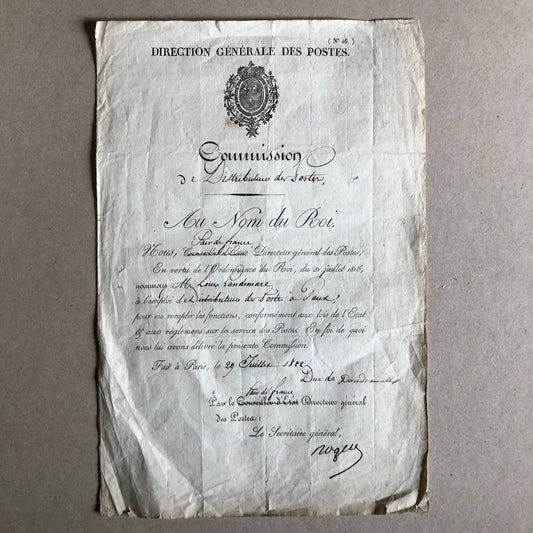 ( N° 26. )
DIRECTION GÉNÉRALE DES POSTES.
Commission
De Distributeur des Postes,
Au Nom du Roi.
Pair de france
Nous, Conseiller d'Etat Directeur général des Postes,
En vertu de l'Ordonnance du Roi, du 31 juillet 1816,
nommons M. Louis Landemare
à l'emploi de Distributeur des Postes à
pour en remplir les fonctions, conformément aux lois de l'Etat
& aux règlemens sur le service des Postes. En foi de quoi
nous lui avons délivré la présente Commission.
Fait à Paris, le 29 Juillet 1822
Duc de Doudeauville
Pair de france
Par le Conseiller d'Etat Directeur général
des Postes :
Le Secrétaire général,
Roger